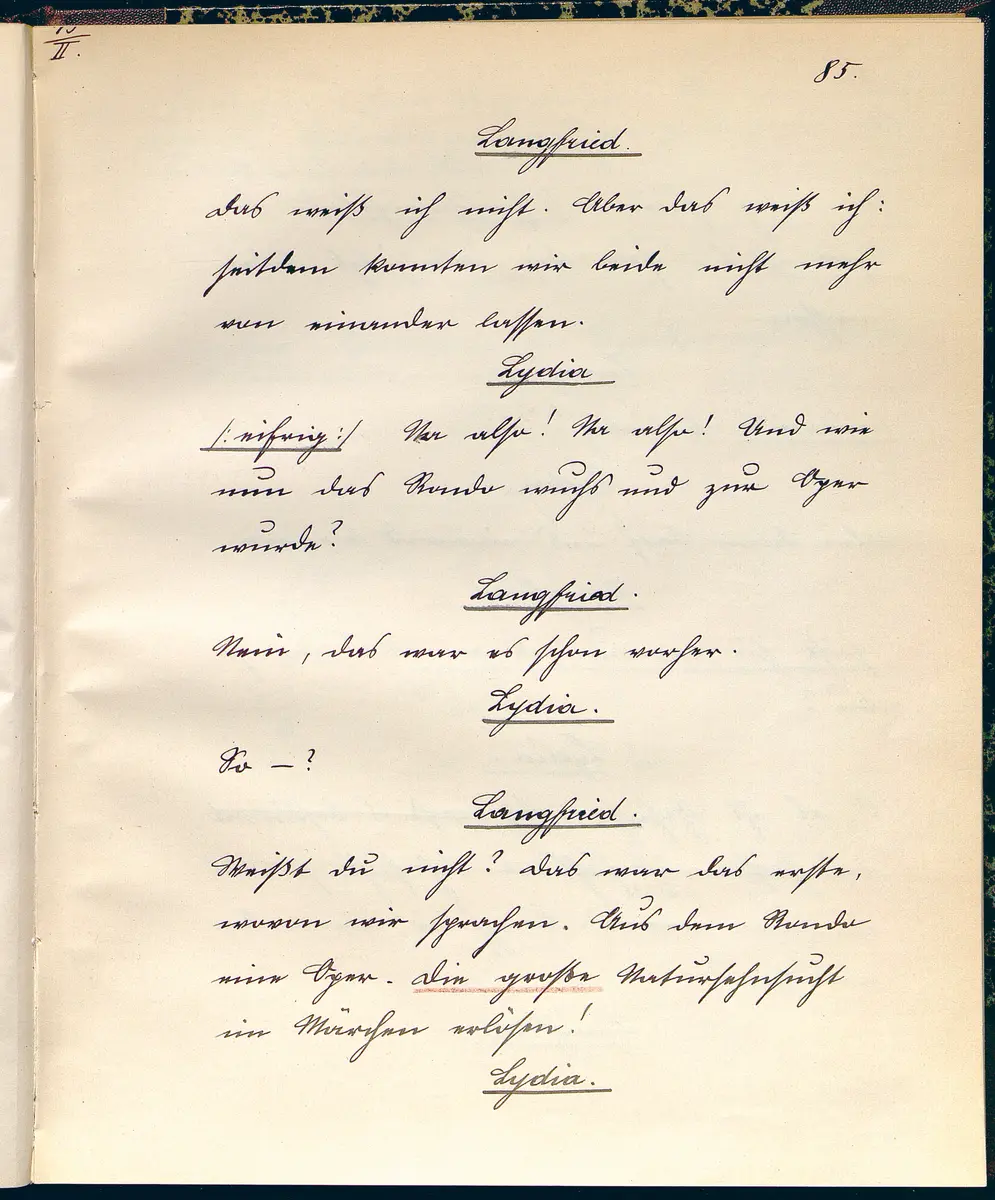 II.
85.
Langfried.
Das weiß ich nicht. Aber das weiß ich:
seitdem konnten wir beide nicht mehr
von einander lassen.
Lydia
/: eifrig :/ Na also! Na also! Und wie
nun das Rondo wuchs und zur Oper
wurde?
Langfried.
Nein, das war es schon vorher.
Lydia.
So – ?
Langfried.
Weißt du nicht? Das war das erste,
wovon wir sprachen. Aus dem Rondo
eine Oper. Die große Natursehnsucht
im Märchen erlösen!
Lydia.